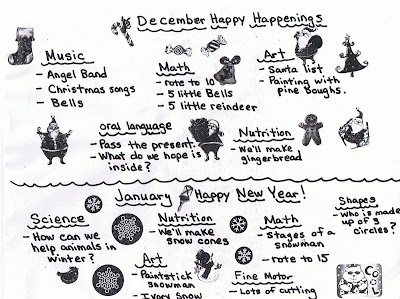 December Happy Happenings
Music
- Angel Band
- Christmas songs
- Bells
Math
- rote to 10
- 5 little Bells
- 5 little reindeer
Art
- Santa list
- Painting with
pine boughs.
oral language
- Pass the present.
- What do we hope is
inside?
Nutrition
- We'll make
gingerbread
January Happy New Year!
Science
- How can we
help animals in
winter?
Nutrition
- We'll make
snow cones
Math
- Stages of a
snowman
- rote to 15
Shapes
- Who is made
up of 3
circles?
Art
- Paintstick
snowman
- Ivory Snow
Fine Motor
- Lots of cutting